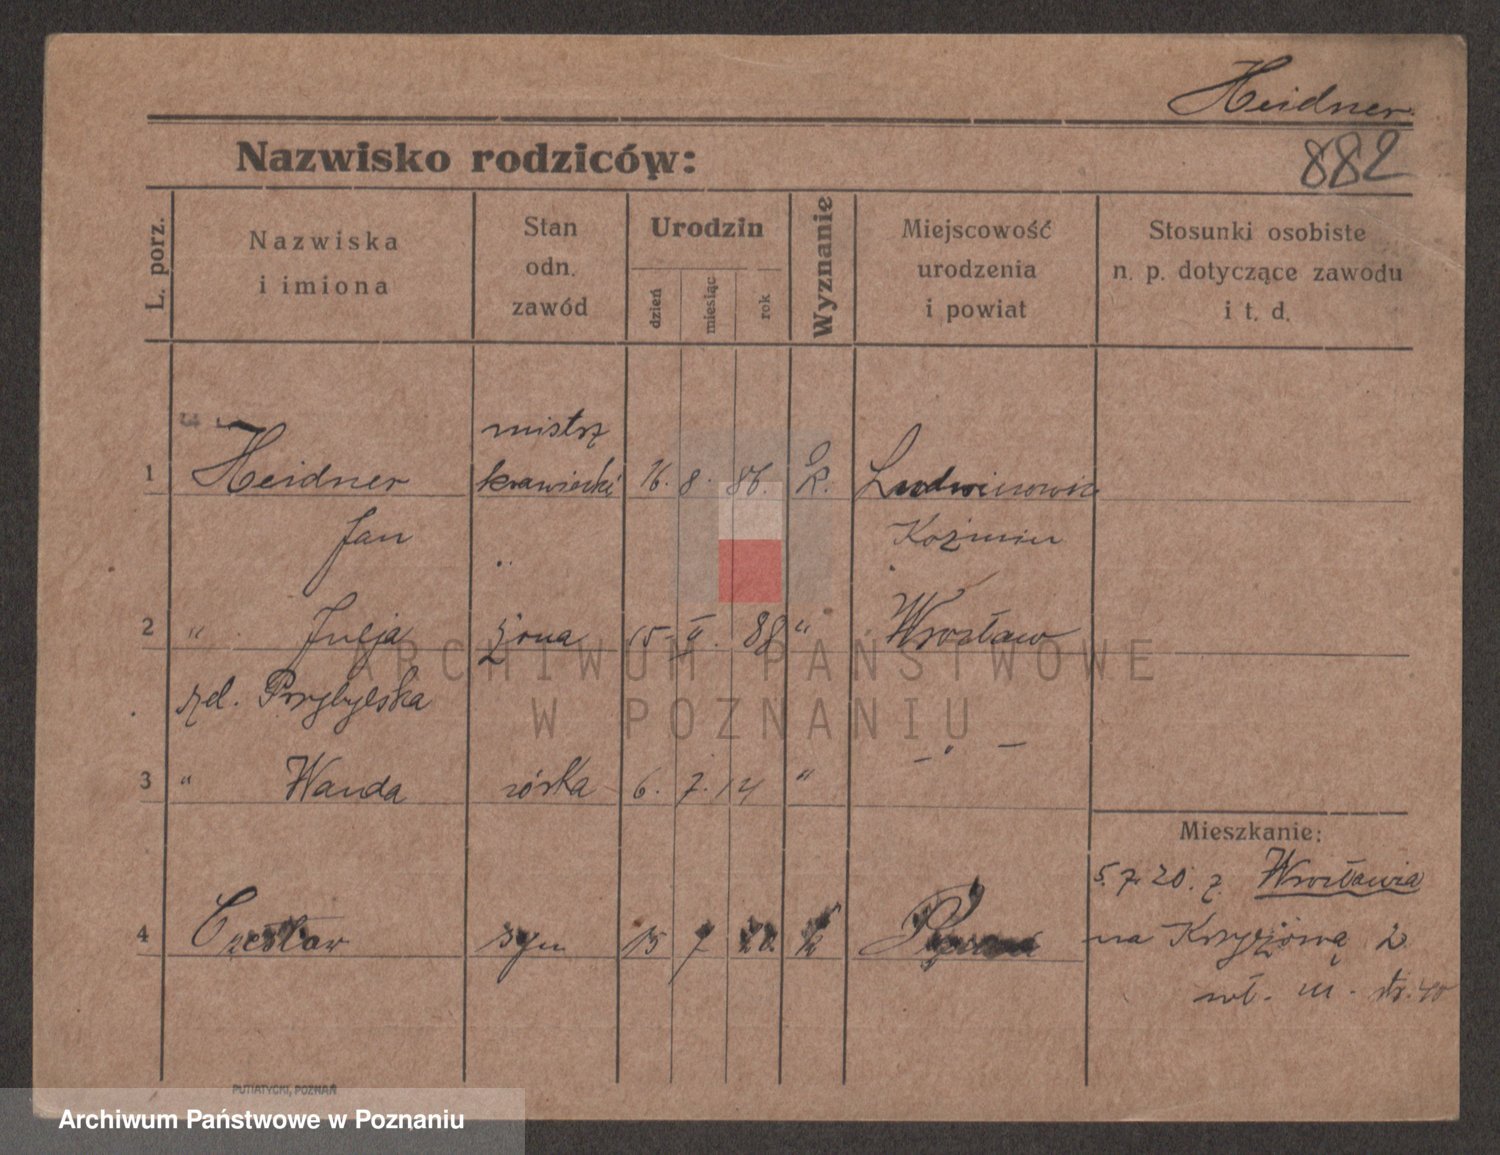 Heidner
Nazwisko rodziców:
882
L. porz.
Nazwiska
i imiona
Stan
odn.
zawód
Urodzin
dzień
miesiąc
rok
Wyznanie
Miejscowość
urodzenia
i powiat
Stosunki osobiste
n. p. dotyczące zawodu
i t. d.
mistrz
1 Heidner krawiecki 16. 8. 86. R.
Jan Koźmin
2 " Julja żona 15 II. 88 " Wrocław
zd. Przybylska
3 " Wanda córka 6. 7. 14 " - " -
Mieszkanie:
5.7.20. z Wrocławia
4 Czesław syn 15 7 20. na Krzyżową 2
wł. III. str. 40
PUTIATYCKI, POZNAŃ
ARCHIWUM PAŃSTWOWE
W POZNANIU
Archiwum Państwowe w Poznaniu